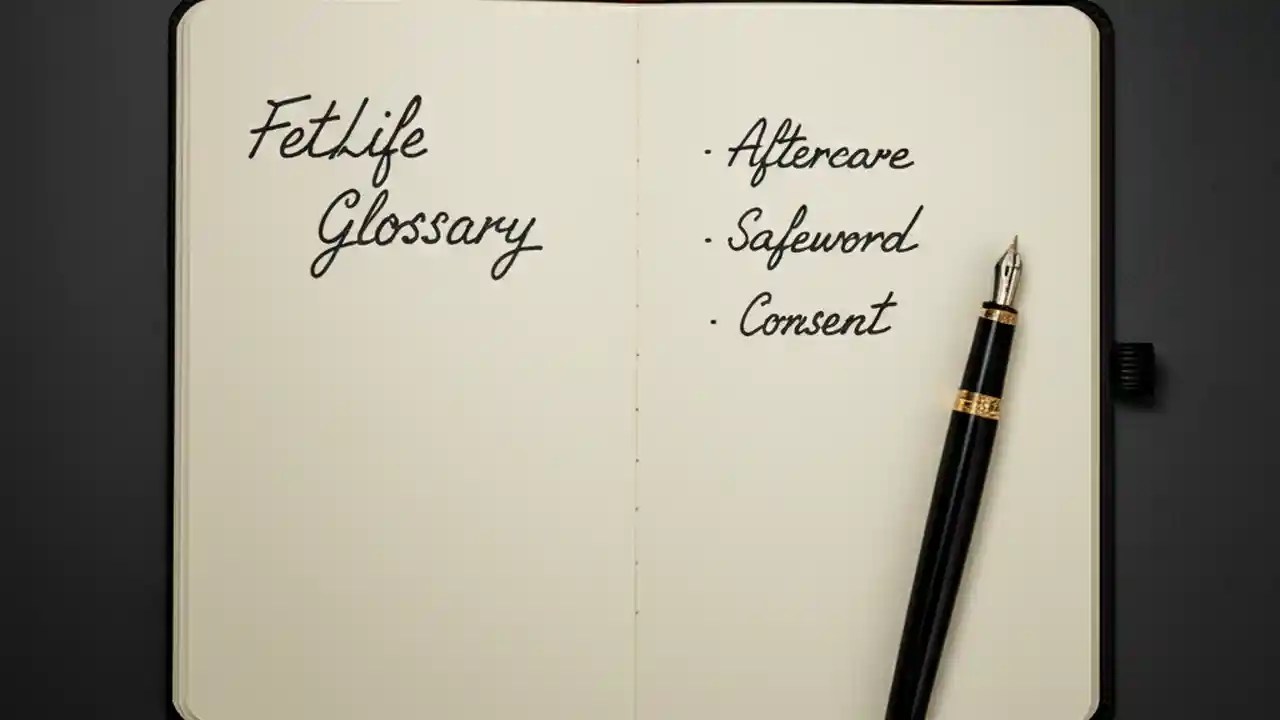 FetLife
Glossary
· Aftercare
· Safeword
· Consent